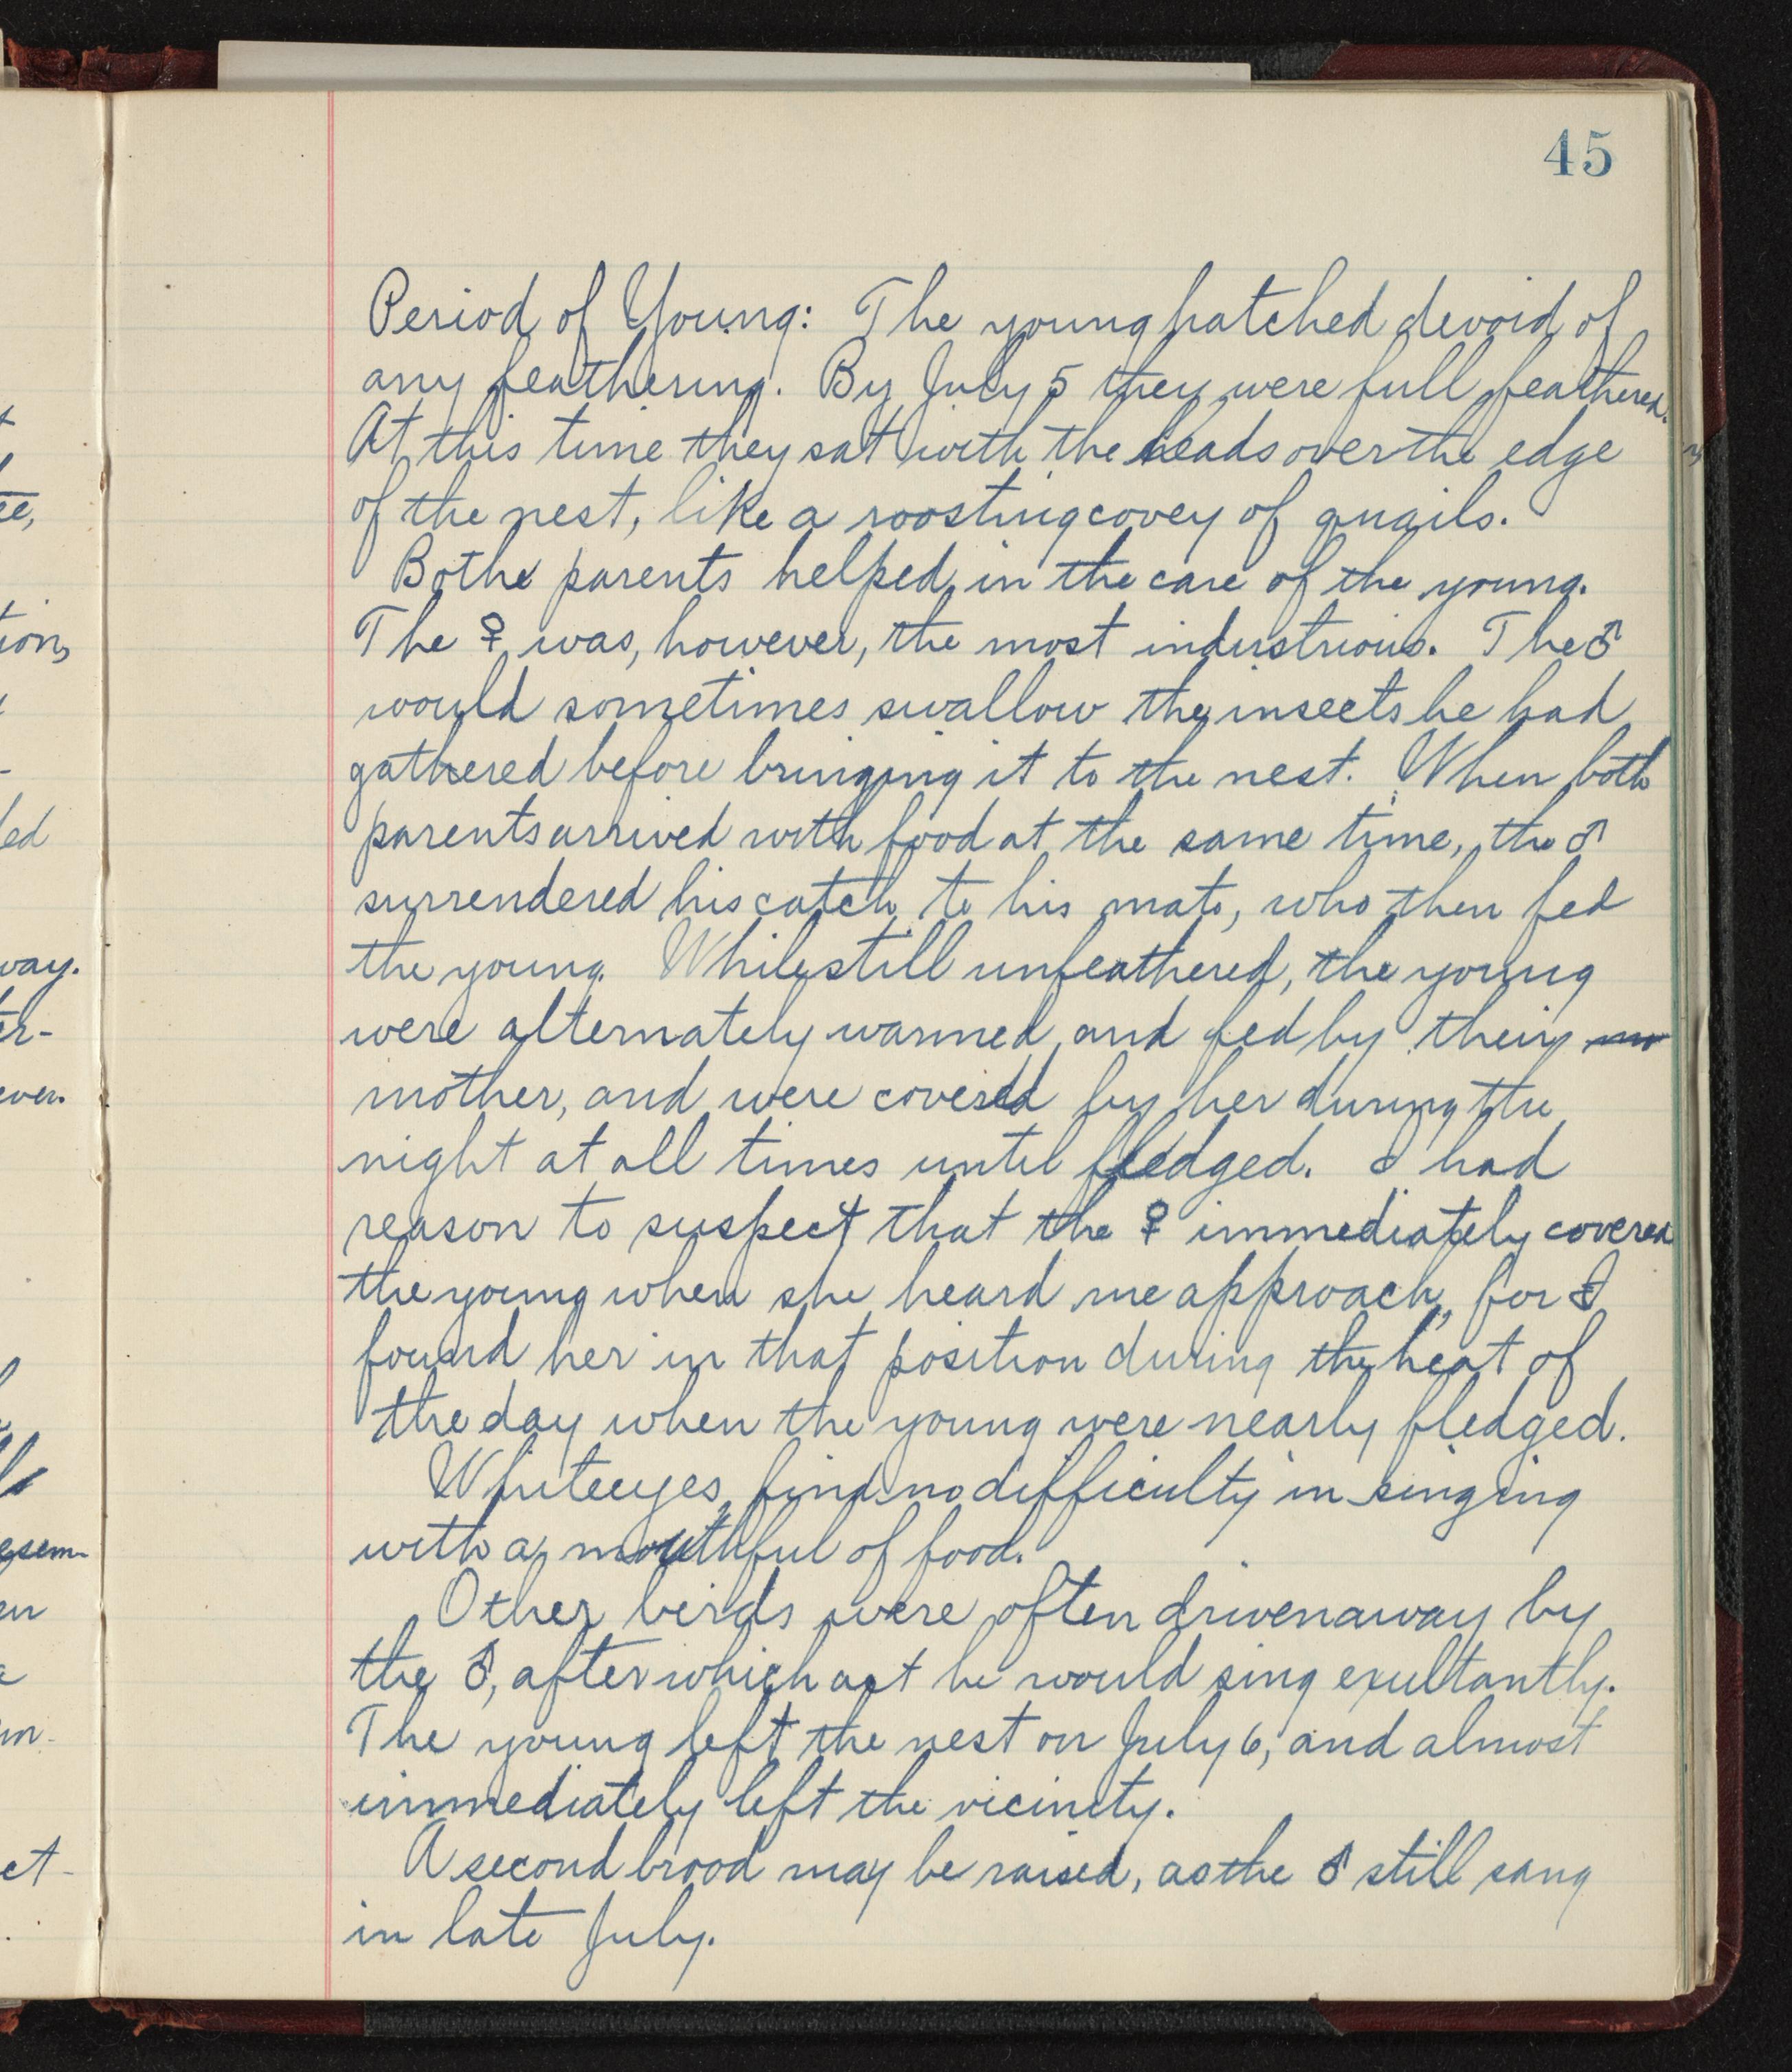 45
Period of Young: The young hatched devoid of
any feathering. By July 5 they were full feathered.
At this time they sat with the heads over the edge
of the nest, like a roosting covey of quails.
Both parents helped in the care of the young.
The ♀ was, however, the most industrious. The ♂
would sometimes swallow the insects he had
gathered before bringing it to the nest. When both
parents arrived with food at the same time, the ♂
surrendered his catch to his mate, who then fed
the young. While still unfeathered, the young
were alternately warmed and fed by their mo
mother, and were covered by her during the
night at all times until fledged. I had
reason to suspect that the ♀ immediately covered
the young when she heard me approach, for I
found her in that position during the heat of
the day when the young were nearly fledged.
Whiteeyes find no difficulty in singing
with a mouthful of food.
Other birds were often driven away by
the ♂, after which act he would sing exultantly.
The young left the nest on July 6, and almost
immediately left the vicinity.
A second brood may be raised, as the ♂ still sang
in late July.